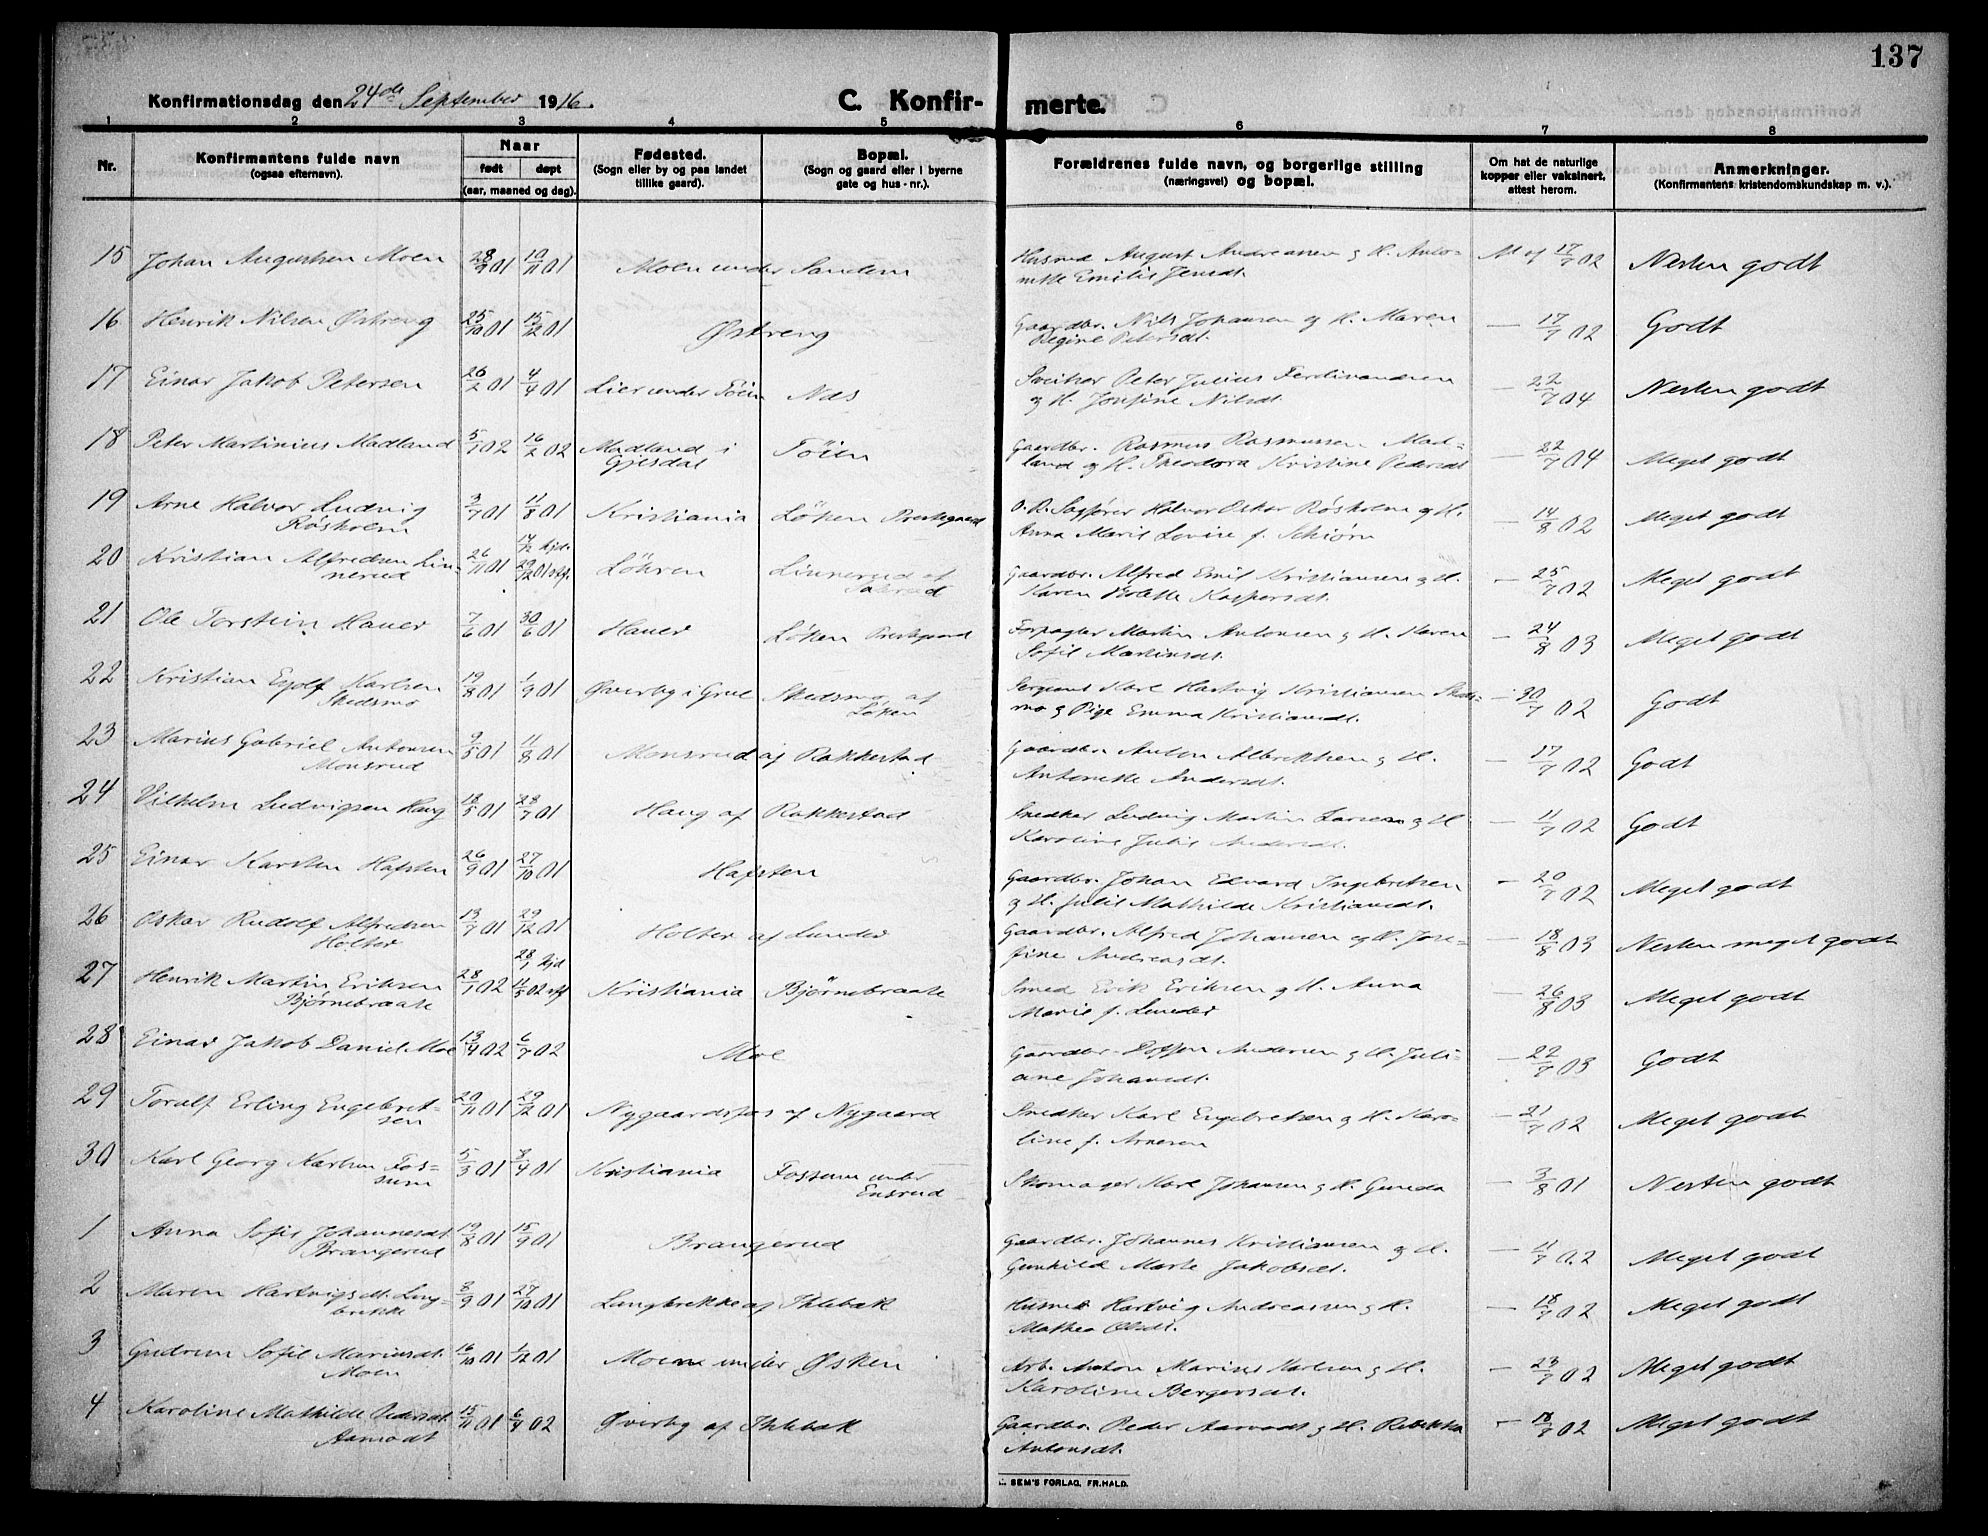 137
Konfirmationsdag den 24de September 1916.
C. Konfir- merte.
1 2 3 4 5 6 7 8
Nr.
Konfirmantens fulde navn
(ogsaa efternavn).
Naar
født døpt
(aar, maaned og dag).
Fødested.
(Sogn eller by og paa landet
tillike gaard).
Bopæl.
(Sogn og gaard eller i byerne
gate og hus-nr.).
Forældrenes fulde navn, og borgerlige stilling
(næringsvei) og bopæl.
Om hat de naturlige
kopper eller vaksinert,
attest herom.
Anmerkninger.
(Konfirmantens kristendomskundskap m. v.).
15 Johan Augustsen Moen 28/9 01 10/11 01 Moen under Sandem Husmd August Andreassen og H. Anto- At af 17/7 02 Nesten godt
nette Emilie Jensdt.
16 Henrik Nilsen Østreng 25/10 01 15/12 01 Østreng Gaardbr. Nils Johansen og H. Maren — 17/7 02 Godt
Regine Petersdt.
17 Einar Jakob Petersen 26/2 01 4/4 01 Lier under Töien Næs Sveitser Peter Julius Ferdinandsen — 22/7 04 Nesten godt
og H. Josefine Nilsdt.
18 Peter Martinius Madland 5/1 02 16/2 02 Madland i Töien Gaardbr. Rasmus Rasmussen Mad- — 22/7 04 Meget godt
Gjesdal land og H. Theodora Kristine Pedersdt
19 Arne Halvor Ludvig 3/7 01 11/8 01 Kristiania Löken Prestegaard O.R. Sagfører Halvor Oskar Røsholm og H. — 14/8 02 Meget godt
Røsholm Anna Marie Lovise f. Schiörn
20 Kristian Alfredsen Lin- 26/11 01 14/12 hjd. 29/12 01 Löhren Linnerud af Gaardbr. Alfred Emil Kristiansen og H. — 25/7 02 Meget godt
nerud Karen Kaspersdt.
21 Ole Torstein Hauer 7/6 01 30/6 01 Hauer Löken Prestegaard Forpagter Martin Antonsen og H. Karen — 24/8 03 Meget godt
Sofie Martinsdt.
22 Kristian Eyolf Karlsen 19/8 01 1/9 01 Øverby i Grue Skedsmo af Sergeant Karl Hartvig Kristiansen Skeds- — 30/7 02 Godt
Skedsmo Löken mo og Pige Emma Kristiansdt.
23 Marius Gabriel Antonsen 9/5 01 11/8 01 Monsrud af Rakkestad Gaardbr. Anton Albrektsen og H. — 17/7 02 Godt
Monsrud Antonette Andersdt.
24 Vilhelm Ludvigsen Haug 18/5 01 28/7 01 Haug af Rakkestad Snedker Ludvig Martin Larsen og H — 11/7 02 Godt
Karoline Julie Andersdt.
25 Einar Karsten Hafsten 26/9 01 27/10 01 Hafsten Gaardbr. Johan Edvard Ingebretsen — 20/7 02 Meget godt
og H. Julie Mathilde Kristiansdt.
26 Oskar Rudolf Alfredsen 13/7 01 29/12 01 Holter af Lunder Gaardbr. Alfred Johansen og H. Jose- — 18/8 03 Nesten meget godt
Holter fine Andreasdt.
27 Henrik Martin Eriksen 28/1 02 28/1 hjd 11/5 02 Kristiania Bjørnebraate Smed Erik Eriksen og H. Anna — 26/8 03 Meget godt
Bjørnebraate Marie f. Lunder
28 Einar Jakob Daniel. Moe 13/4 02 6/7 02 Moe Gaardbr. Andersen og H. Juli- — 22/7 03 Godt
ane Johansdt.
29 Toralf Erling Engebret- 20/11 01 29/12 01 Nygaardspas af Nygaard Snedker Karl Engebretsen og H. Karo- — 21/7 02 Meget godt
sen line f. Arnesen
30 Karl Georg Karlsen Fos- 5/3 01 8/4 01 Kristiania Fossum under Skomager Karl Johansen og H. Gunda — 3/8 01 Nesten godt
sum Ensrud
1 Anna Sofie Johannesdt. 19/8 01 15/9 01 Brangerud Gaardbr. Johannes Kristiansen og H. — 11/7 02 Meget godt
Brangerud Gunhild Marte Jakobsdt.
2 Maren Hartvigsdt. Lang- 8/9 01 27/10 01 Langbrekke af Ihlebæk Husmd Hartvig Andreassen og H. — 18/7 02 Meget godt
brekke Mathea Olsdt.
3 Gudrun Sofie Mariusdt. 16/10 01 1/12 01 Moen under Øsken Arb. Anton Marius Karlsen og H. — 23/7 02 Meget godt
Moen Karoline Bergersdt.
4 Karoline Mathilde Pedersdt. 15/11 01 6/4 02 Øverby af Ihlebæk Gaardbr. Peder Aamodt og H. Rebekka — 18/7 02 Meget godt
Aamodt Antonsdt.
SEM'S FORLAG, FR.HALD.